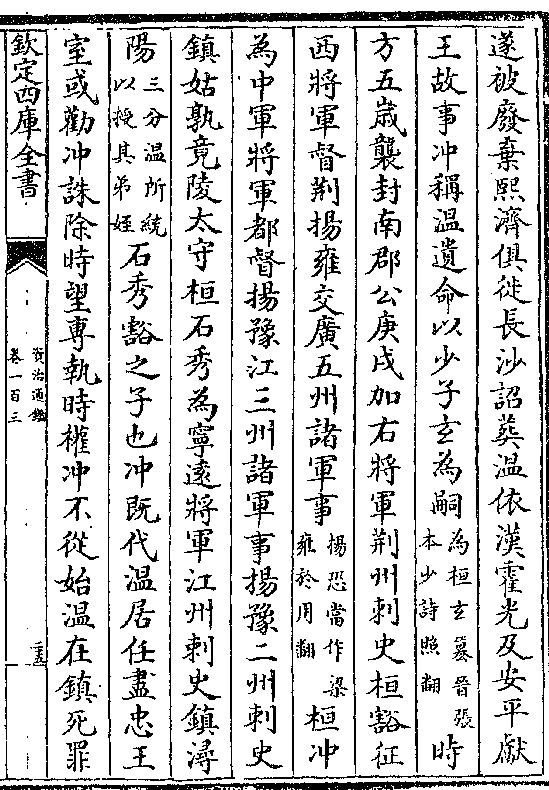 遂被廢棄熙濟俱徙長沙詔葬温依漢霍光及安平獻
王故事冲稱温遺命以少子玄為嗣
為桓玄簒晉張
本少詩照翻
時
方五歳襲封南郡公庚戌加右將軍荆州刺史桓豁征
西將軍督荆揚雍交廣五州諸軍事
揚恐當作梁
雍於用翻
桓冲
為中軍將軍都督揚豫江三州諸軍事揚豫二州刺史
鎮姑孰竟陵太守桓石秀為寧遠將軍江州刺史鎮潯
陽
三分温所統
以授其弟姪
石秀豁之子也冲既代温居任盡忠王
室或勸冲誅除時望專執時權冲不從始温在鎮死罪
欽定四庫全書
資治通鑑
卷一百三
二五